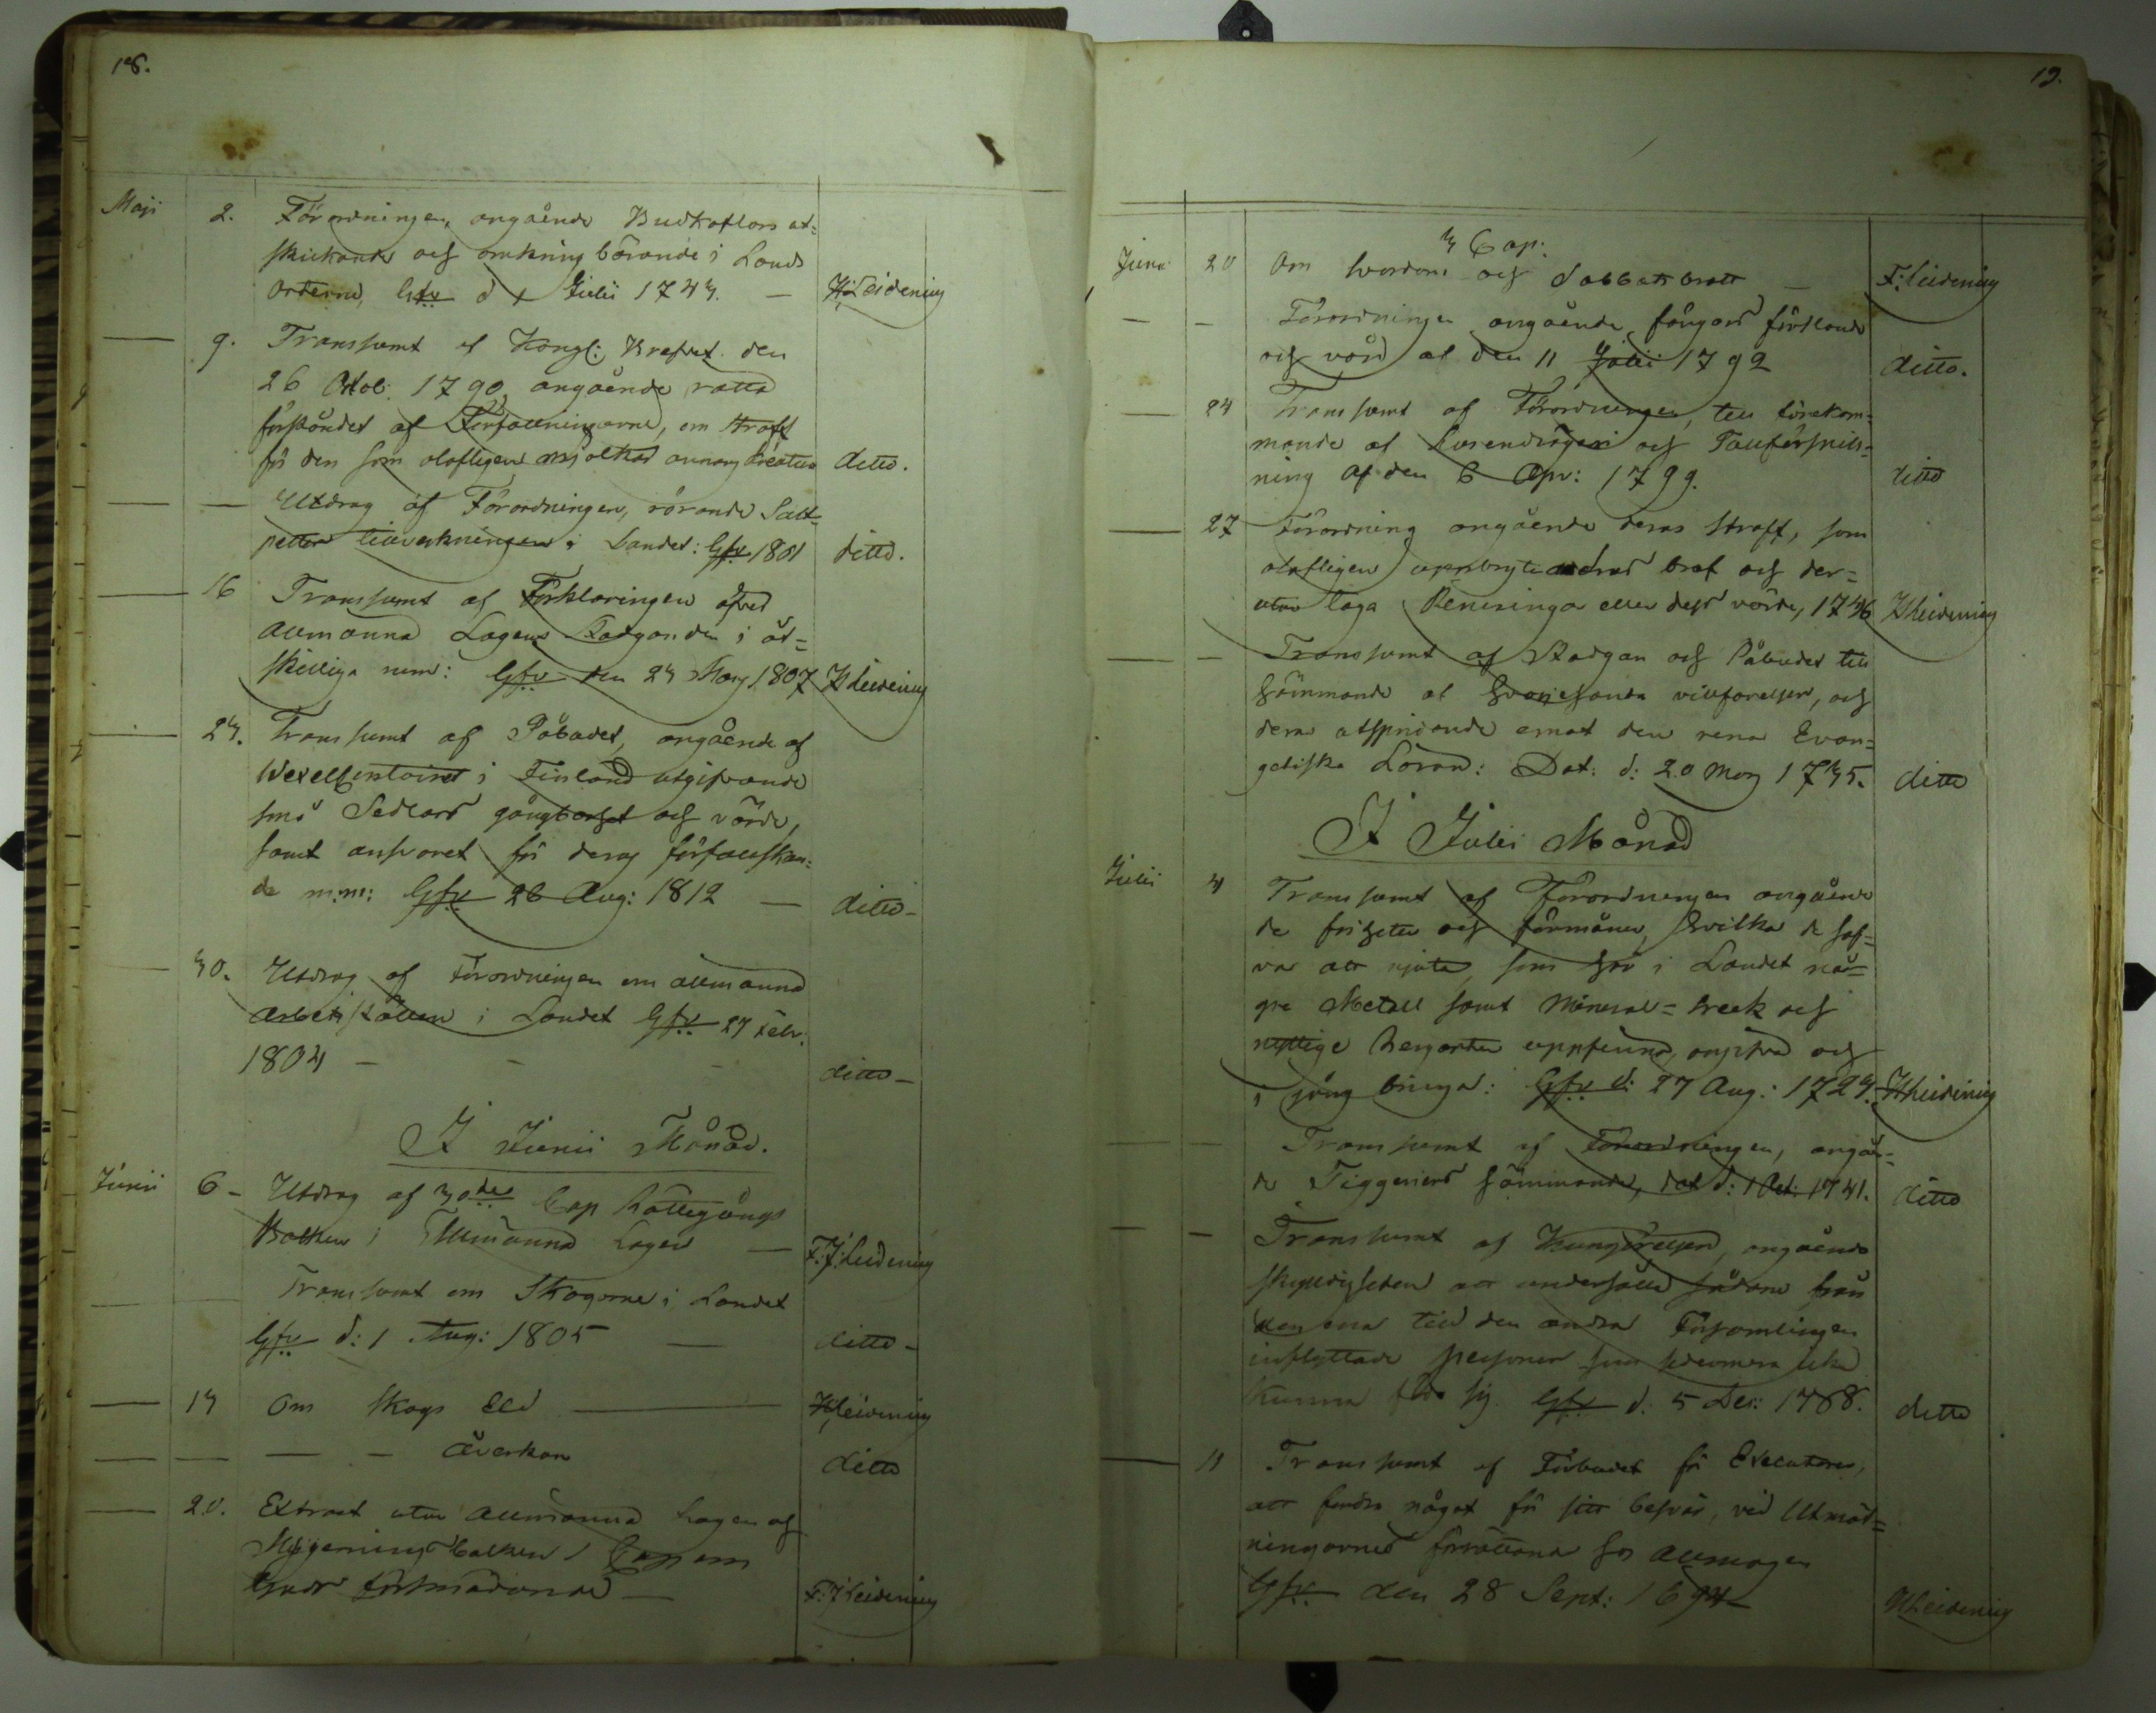 18.
Maji 2. Förordningen, angående Budkaflars ut=
skickande och omkring börande i Lands
Orterne, Gifv d 1 Julii 1743. — Leidenius
— 9. Transsumt af Kongl: Brefvet den
26 Octob: 1790, angående rätta
förståndet af Författningarne, om straff
för den som olofligen mjölkar annans Creatur ditto.
— — Utdrag af Förordningen, rörande Salt=
petter tillverkningen i Landet: Gifv. 1801 ditto.
— 16 Transsumt af Förklaringen öfver
Allmänna Lagens Stadganden i åt=
skilliga rum: Gifv. den 23 Marz 1807 Leidenius
— 23. Transsumt af Påbudet, angående af
Wexel Contoiret i Finland utgifvande
små Sedlars gångbarhet och värde,
samt ansvaret för deras förfalskan=
de m:m: Gifv. 28 Aug: 1812 — ditto —
— 30. Utdrag af Förordningen om allmänna
Arbets ställen i Landet Gifv. 27 Febr.
1804 — — — ditto —
I Junii Månad.
Junii 6 — Utdrag af 30de Cap Rättegångs
Balken i Allmänna Lagen — F: J: Leidenius
Transsumt om Skogarne i Landet
Gifv. d: 1 Aug: 1805 — ditto —
— 13 Om Skogs Eld — Leidenius
— — — — Åverkan ditto
— 20. Extract utur Allmänna Lagen af
Missgernings Balken 1 Cap om
Guds försmädande — F: J Leidenius
19.
3 Cap:
Junii 20 Om svordom och Sabbatsbrott — F: Leidenius
— — Förordningen angående fångars förtland
och vård af den 11 Julii 1792 ditto.
— 24 Transsumt af Förordningen, till förekom=
mande af Lurendrägeri och Tullförsnill=
ning af den 6 Apr: 1799. ditto
— 27 Förordning angående deras straff, som
olofligen uppbryta andras bref och der=
utur taga Penningar eller dess värde, 1736 Leidenius
— — Transsumt af Stadgan och Påbudet till
hämmande af hvarjehanda villfarelser, och
deras utspridande emot den rena Evan=
geliska Läran: Dat: d: 20 Marz 1735. ditto
I Julii Månad
Julii 4 Transsumt af Förordningen angående
de friheter och förmåner, hvilka de haf=
va att njuta, som här i Landet nå=
gre Metall samt Mineral= Streck och
nyttige Bergarter uppfinna, angifva och
i gång bringa: Gifv d: 27 Aug: 1723. Leidenius
— — Transsumt af Förordningen, angåen=
de Tiggeriers hämmande, dat d: 1 Oct: 1741. ditto
— — Transsumt af Kungörelsen, angående
skyldigheten att underhålla sådane från
den ena till den andra Församlingen
inflyttade personer som sedermera icke
kunna föda sig Gifv d: 5 Dec: 1788. ditto
— 11 Transsumt af Förbudet för Executorer,
att fordra något för sitt besvär, vid Utmät=
ningarnes förrättande hos Allmogen
Gifv. den 28 Sept: 1694 Leidenius